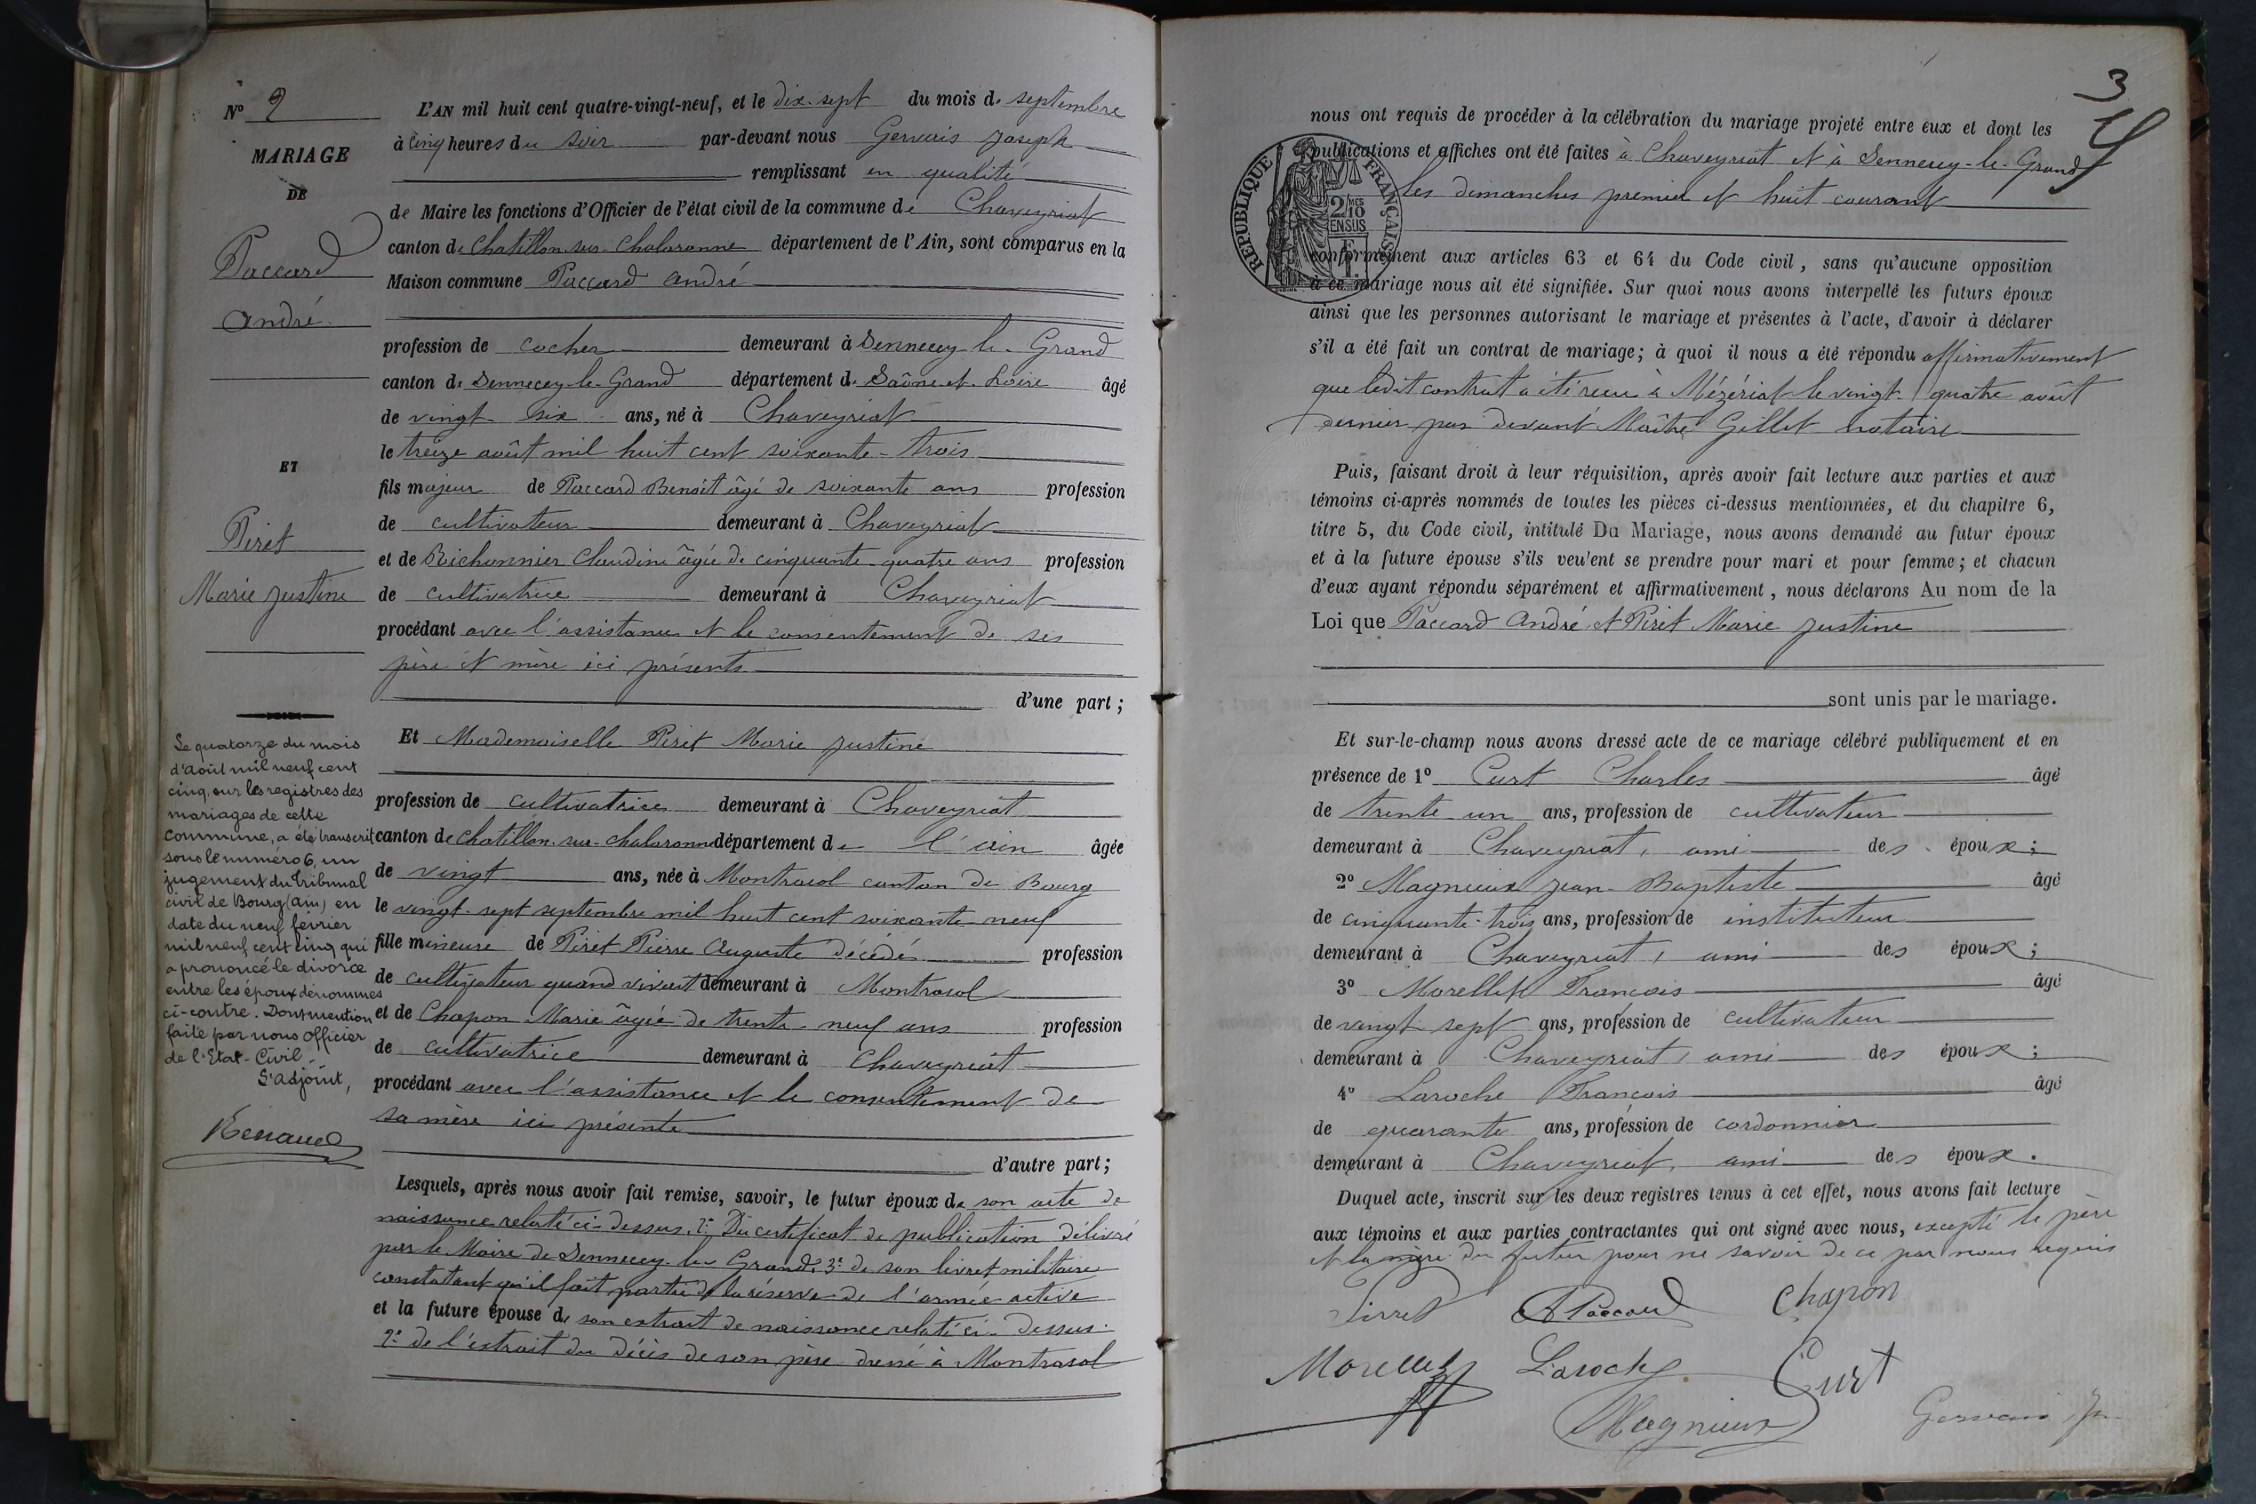 N° 2
MARIAGE
DE
Paccard
André
ET
Piret
Marie Justine
Le quatorze du mois
d'août mil neuf cent
cinq, sur les registres des
mariages de cette
commune, a été transcrit
sous le numéro 6, un
jugement du Tribunal
civil de Bourg (Ain) en
date du neuf février
mil neuf cent cinq qui
a prononcé le divorce
entre les époux dénommés
ci-contre. Dont mention
faite par nous Officier
de l'Etat-Civil.
L'adjoint,
Renaud
L'AN mil huit cent quatre-vingt-neuf, et le dix-sept du mois de septembre
à cinq heures du soir par-devant nous Gervais Joseph
remplissant en qualité
de Maire les fonctions d'Officier de l'état civil de la commune de Chaveyriat
canton de Chatillon sur Chalaronne département de l'Ain, sont comparus en la
Maison commune Paccard André
profession de cocher demeurant à Sennecey-le-Grand
canton de Sennecey-le-Grand département de Saône-et-Loire âgé
de vingt six ans, né à Chaveyriat
le treize août mil huit cent soixante-trois
fils majeur de Paccard Benoît âgé de soixante ans profession
de cultivateur demeurant à Chaveyriat
et de Richonnier Claudine âgée de cinquante-quatre ans profession
de cultivatrice demeurant à Chaveyriat
procédant avec l'assistance et le consentement de ses
père et mère ici présents
d'une part;
Et Mademoiselle Piret Marie Justine
profession de cultivatrice demeurant à Chaveyriat
canton de Chatillon-sur-Chalaronne département de l'Ain âgée
de vingt ans, née à Montracol canton de Bourg
le vingt-sept septembre mil huit cent soixante neuf
fille mineure de Piret Pierre Auguste décédé profession
de cultivateur quand vivait demeurant à Montracol
et de Chapon Marie âgée de trente-neuf ans profession
de cultivatrice demeurant à Chaveyriat
procédant avec l'assistance et le consentement de
sa mère ici présente
d'autre part;
Lesquels, après nous avoir fait remise, savoir, le futur époux de son acte de
naissance relaté ci-dessus. 2° Du certificat de publication délivré
par le Maire de Sennecey-le-Grand. 3° de son livret militaire
constatant qu'il fait partie de la réserve de l'armée active
et la future épouse de son extrait de naissance relaté ci-dessus.
2° de l'extrait du décès de son père dressé à Montracol
3
nous ont requis de procéder à la célébration du mariage projeté entre eux et dont les
publications et affiches ont été faites à Chaveyriat et à Sennecey-le-Grand
les dimanches premier et huit courant
RÉPUBLIQUE FRANÇAISE
2/10 MES
EN SUS
conformément aux articles 63 et 64 du Code civil, sans qu'aucune opposition
à ce mariage nous ait été signifiée. Sur quoi nous avons interpellé les futurs époux
ainsi que les personnes autorisant le mariage et présentes à l'acte, d'avoir à déclarer
s'il a été fait un contrat de mariage; à quoi il nous a été répondu affirmativement
que ledit contrat a été reçu à Mézériat le vingt-quatre août
dernier par devant Maître Gillet notaire
Puis, faisant droit à leur réquisition, après avoir fait lecture aux parties et aux
témoins ci-après nommés de toutes les pièces ci-dessus mentionnées, et du chapitre 6,
titre 5, du Code civil, intitulé Du Mariage, nous avons demandé au futur époux
et à la future épouse s'ils veu'ent se prendre pour mari et pour femme; et chacun
d'eux ayant répondu séparément et affirmativement, nous déclarons Au nom de la
Loi que Paccard André et Piret Marie Justine
sont unis par le mariage.
Et sur-le-champ nous avons dressé acte de ce mariage célébré publiquement et en
présence de 1° Curt Charles âgé
de trente-un ans, profession de cultivateur
demeurant à Chaveyriat, ami des époux;
2° Magnieux Jean-Baptiste âgé
de cinquante-trois ans, profession de instituteur
demeurant à Chaveyriat, ami des époux;
3° Morellet François âgé
de vingt sept ans, profession de cultivateur
demeurant à Chaveyriat, ami des époux;
4° Laroche François âgé
de quarante ans, profession de cordonnier
demeurant à Chaveyriat, ami des époux.
Duquel acte, inscrit sur les deux registres tenus à cet effet, nous avons fait lecture
aux témoins et aux parties contractantes qui ont signé avec nous, excepté le père
et la mère du futur pour ne savoir de ce par nous requis
Pirret A Paccard Chapon
Morellet Laroche Curt
Magnieux Gervais